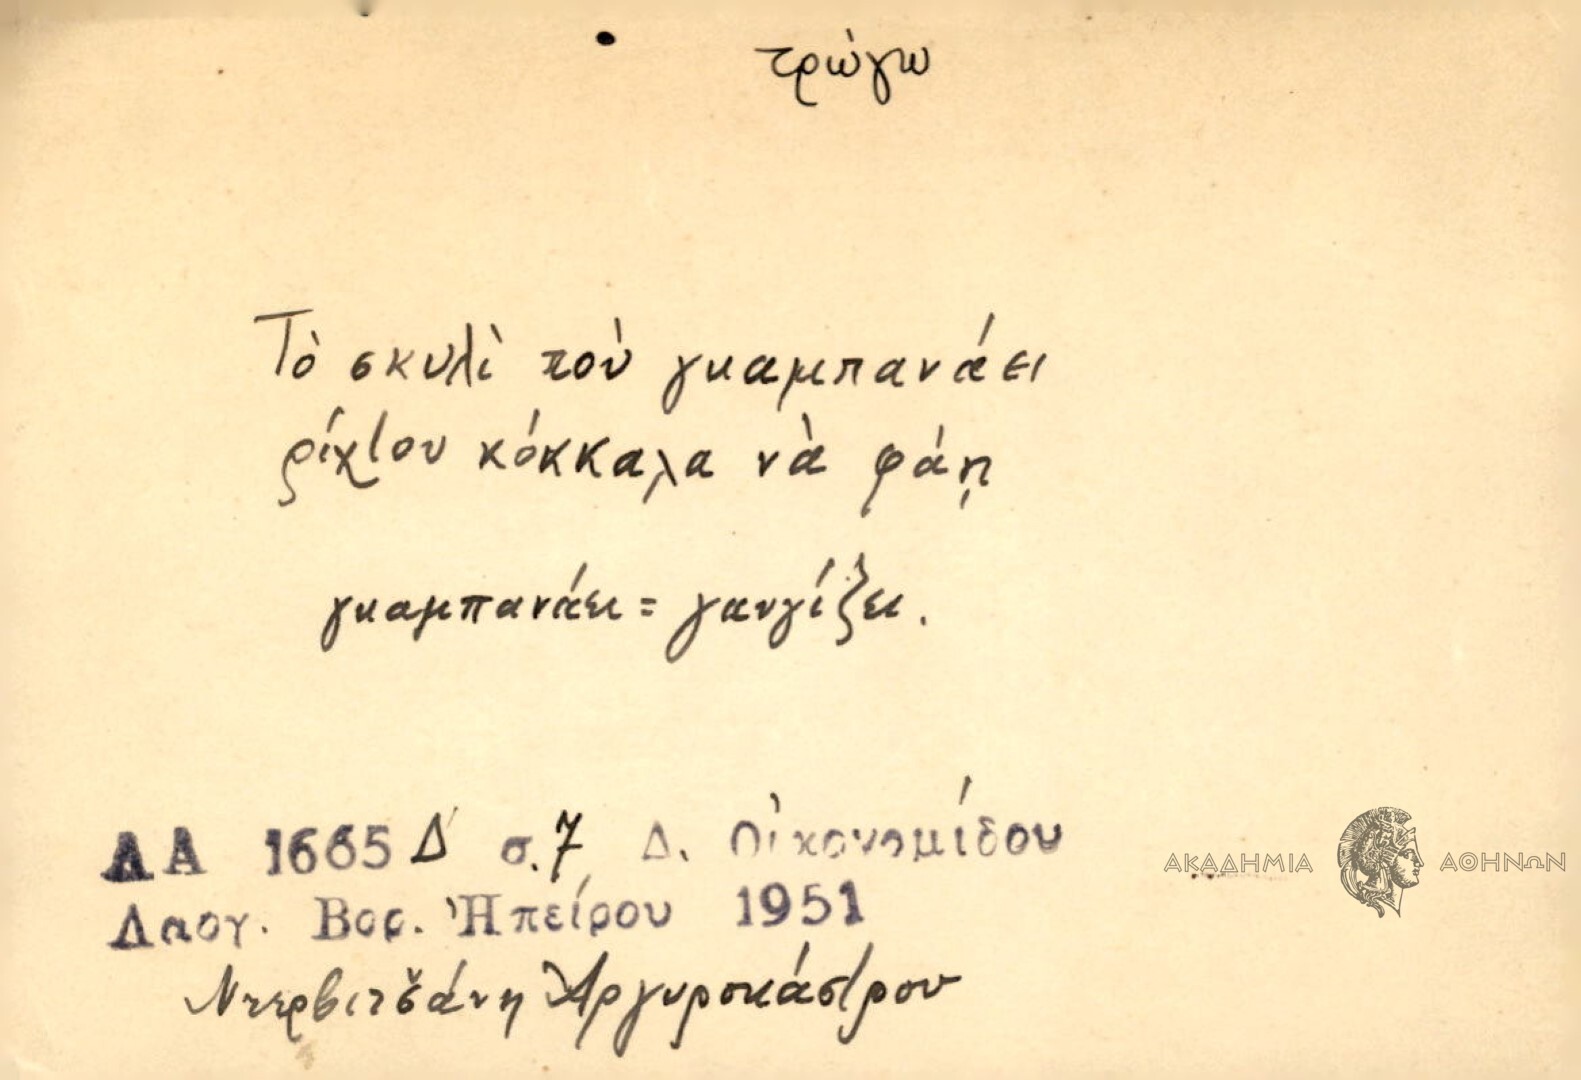 τρώγω
Τὸ σκυλὶ ποὺ γκαμπανάει
ρίχτου κόκκαλα νὰ φάῃ
γκαμπανάει = γαυγίζει.
ΛΑ 1665 Δ΄ σ. 7 Δ. Οἰκονομίδου
Λαογ. Βορ. Ἠπείρου 1951
Ντερβιτσ̌άνη Ἀργυροκάστρου
ΑΚΑΔΗΜΙΑ ΑΘΗΝΩΝ